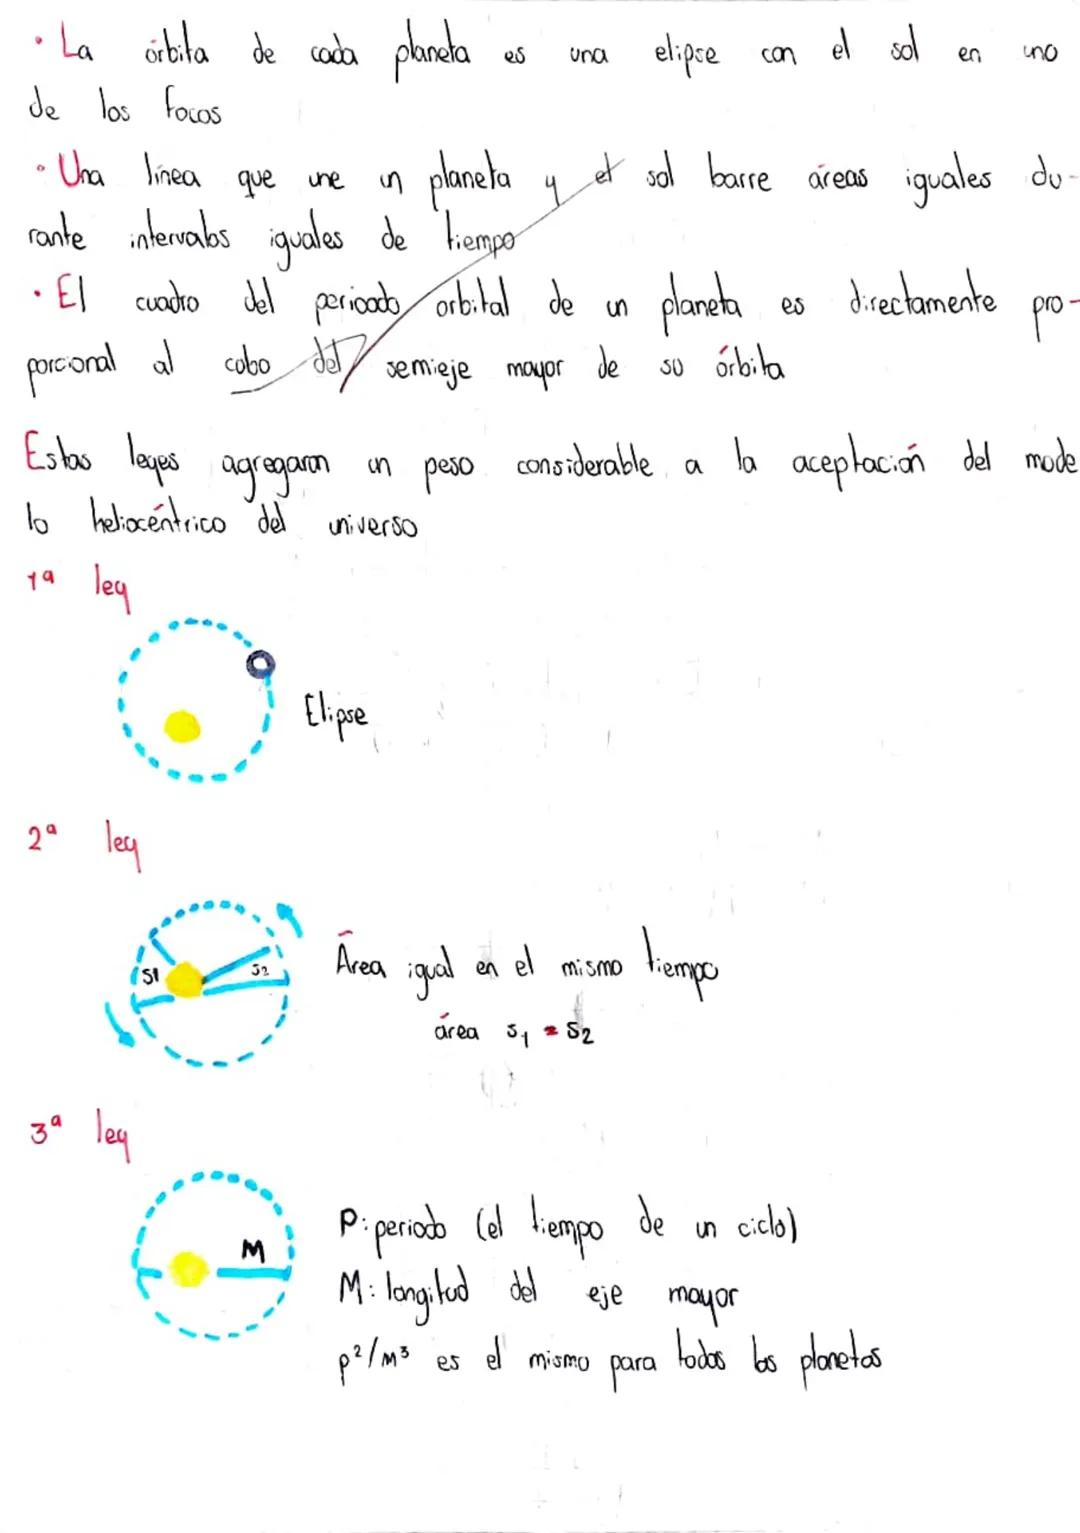 · La órbita de cada planeta es una elipse con el sol en uno
de los focos
· Una línea que une un planeta y el sol barre áreas iguales du-
rante intervalos iguales de tiempo
· El cuadro del perioado orbital de un planeta es directamente pro-
porcional al cobo del semieje mayor de su órbita
Estas leyes agregaron un peso considerable a la aceptación del mode
lo heliocéntrico del universo
1ª ley
Elipse
2ª ley
S1
S2
Área igual en el mismo tiempo
área S1 = S2
3ª ley
M
P: periodo (el tiempo de un ciclo)
M: longitud del eje mayor
p²/M³ es el mismo para todos los planetas